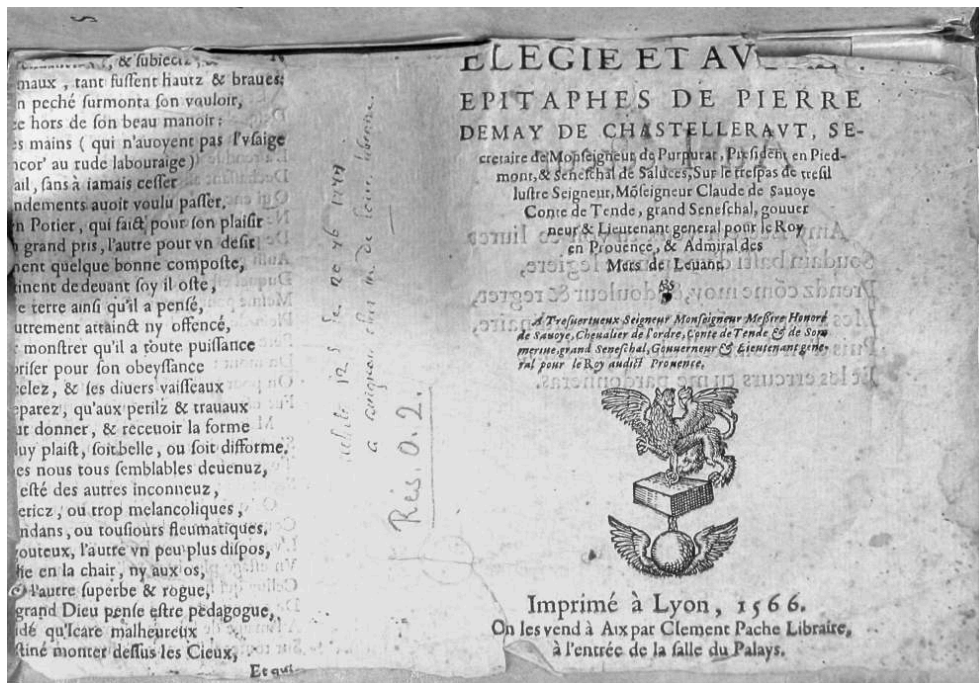 , & subiectz
maux, tant fussent hautz & braues:
n peché surmonta son vouloir,
ce hors de son beau manoir:
es mains ( qui n'auoyent pas l'vsaige
ncor' au rude labouraige)
ail, sans à iamais cesser
ndements auoit voulu passer,
n Potier, qui faict pour son plaisir
grand pris, l'autre pour vn desir
nent quelque bonne composte,
tinent de deuant soy il oste,
e terre ainsi qu'il a pensé,
utrement attainct ny offencé,
monstrer qu'il a toute puissance
oriser pour son obeyssance
celez, & ses diuers vaisseaux
eparez, qu'aux perilz & trauaux
ut donner, & receuoir la forme
luy plaist, soit belle, ou soit difforme.
es nous tous semblables deuenuz,
esté des autres inconneuz,
ericz, ou trop melancoliques,
ndans, ou tousiours fleumatiques,
outeux, l'autre vn peu plus dispos,
ne en la chair, ny aux os,
l'autre superbe & rogue,
grand Dieu pense estre pedagogue,
idé qu'Icare malheureux
stiné monter dessus les Cieux,
Et qui
Rés. 0. 2.
ELEGIE ET
EPITAPHES DE PIERRE
DEMAY DE CHASTELLERAVT, SE-
cretaire de Monseigneur de Purpurat, President en Pied-
mont, & Seneschal de Saluces, Sur le trespas de tresil
lustre Seigneur, Mõseigneur Claude de Sauoye
Conte de Tende, grand Seneschal, gouuer
neur & Lieutenant general pour le Roy
en Prouence, & Admiral des
Mers de Leuant.
A Tresuertueux Seigneur Monseigneur Messire Honoré
de Sauoye, Cheualier de l'ordre, Conte de Tende & de Som
merine, grand Seneschal, Gouuerneur & Lieutenant gene-
ral pour le Roy audict Prouence,
Imprimé à Lyon, 1566.
On les vend à Aix par Clement Pache Libraire,
à l'entrée de la salle du Palays.